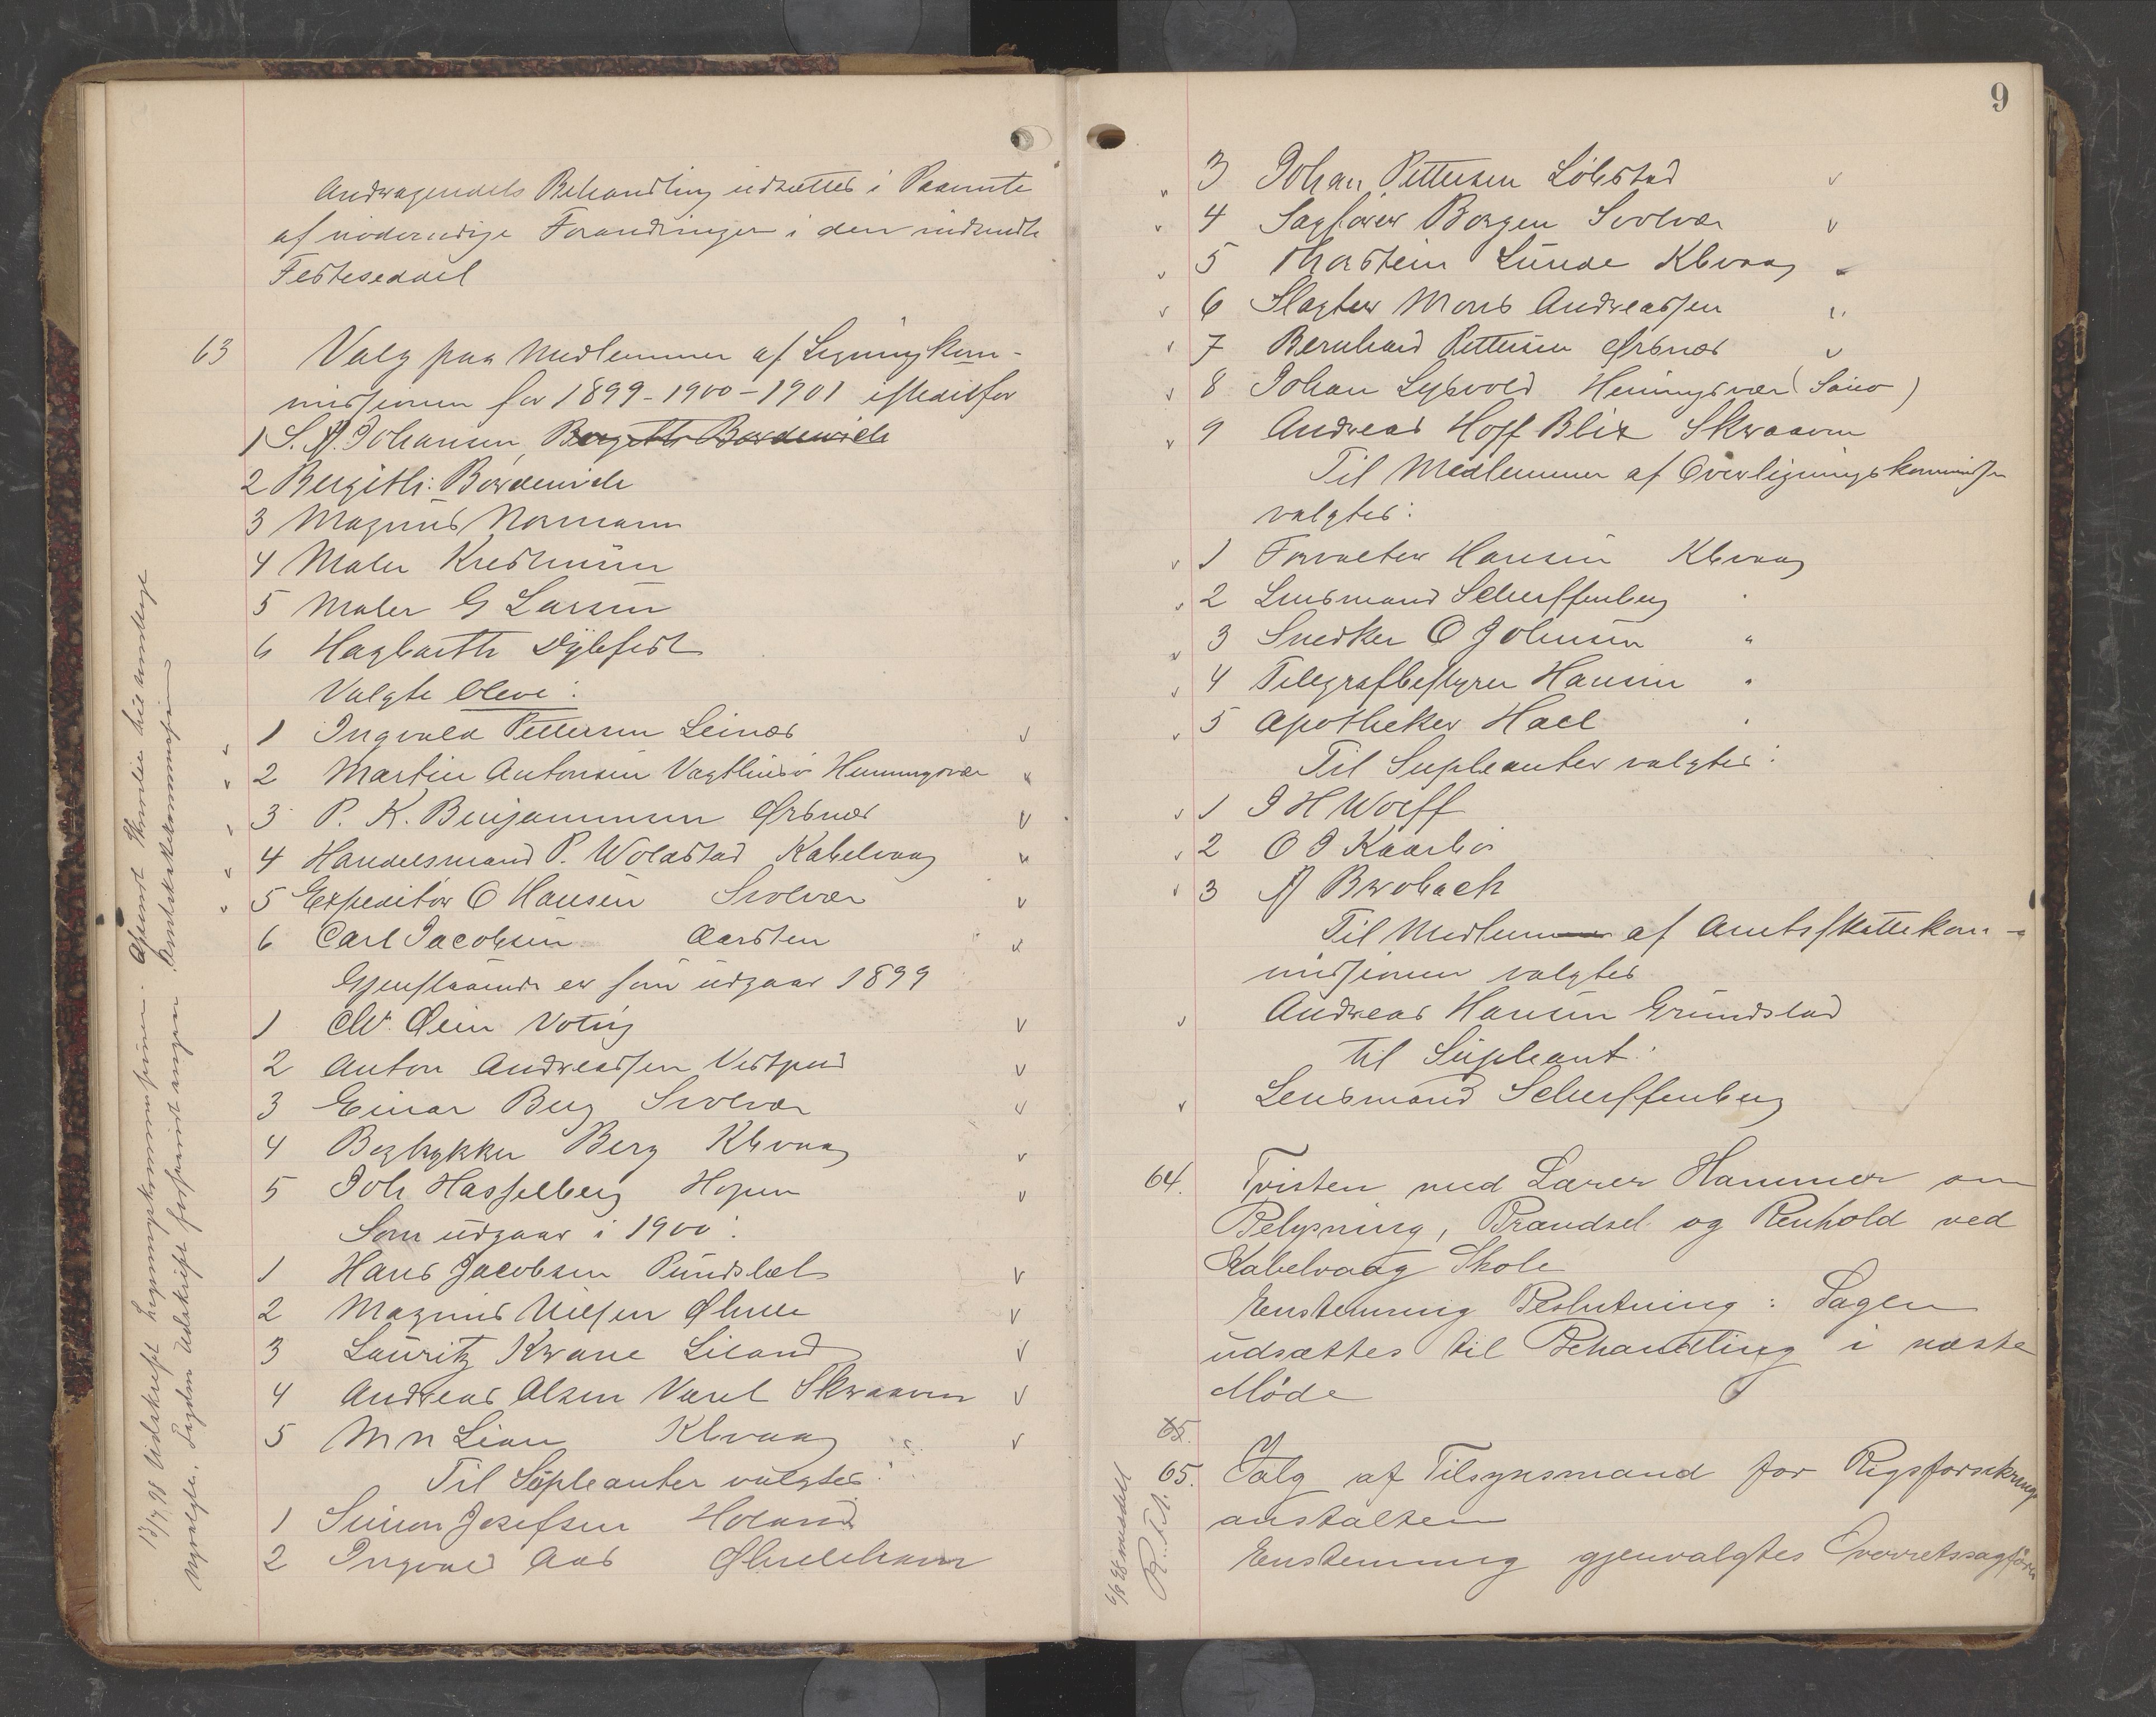 Andragendets Behandling udsættes i Paavente
af nødvendige Forandringer i den indsendte
Festeseddel
63 Valg paa Medlemmer af Ligningskom-
missionen for 1899-1900-1901 istedetfor
1 S. A. Johansen, Bergith Bordewich
2 Bergith: Bordewich
3 Magnus Normann
4 Maler Kristensen
5 Maler G Larsen
6 Hagbarth Dybfest
Valgte bleve:
1 Ingvald Pettersen Leinæs
2 Martin Antonsen Henningsvær
3 P. K. Benjaminsen Ørsnæs
4 Handelsmand P. Woldstad Kabelvaag
5 Expeditør O Hansen Svolvær
6 Carl Jacobsen Aarsten
Gjenstaaende er som udgaar 1899
1 Chr. Olsen Votvig
2 Anton Andreassen Vestpod
3 Einar Berg Svolvær
4 Bogtrykker Berg Kbvaag
5 Joh Hasselberg Hopen
Som udgaar i 1900:
1 Hans Jacobsen Pundslet
2 Magnus Nilsen Ølhelle
3 Lauritz Krane Liland
4 Andreas Olsen Varel Skraaven
5 M N Lian Kbvaag
Til Supleanter valgtes:
1 Simon Josefsen Holand
2 Ingvald Aas
13/7 98 Udskrift Ligningskommissionen. Afsendt
nyvalgte. Sagden Udskrift forsaavidt angaar Amtsskattekommissionen
9
3 Johan Pettersen Løkstad
4 Sagfører Borgen Svolvær
5 Thorstein Lunde Kbvaag
6 Slagter Mons Andreassen "
7 Bernhard Pettersen Ørsnæs
8 Johan Lysvold Henningsvær (Sauø)
9 Andreas Hoff Blix Skraaven
Til Medlemmer af Overligningskommissn
valgtes:
1 Forvalter Hansen Kbvaag
2 Lensmand Scherffenberg "
3 Snedker O Johnsen "
4 Telegrafbestyrer Hansen "
5 Apotheker Hall "
Til Supleanter valgtes:
1 J H Wolff
2 O J Kaarbø
3 A Brobach
Til Medlem af Amtsskattekom-
missionen valgtes
Andreas Hansen Grundstad
til Supleant:
Lensmand Scherffenberg
64. Tvisten med Lærer Hammer om
Belysning, Brændsel og Renhold ved
Kabelvaag Skole
Enstemmig Beslutning: Sagen
udsættes til Behandling i næste
Møde
65.
65. Valg af Tilsynsmand for Rigsforsikrings
anstalten
Enstemmig gjenvalgtes Overretssagfører
6/8 98 meddelt
R. F. A.